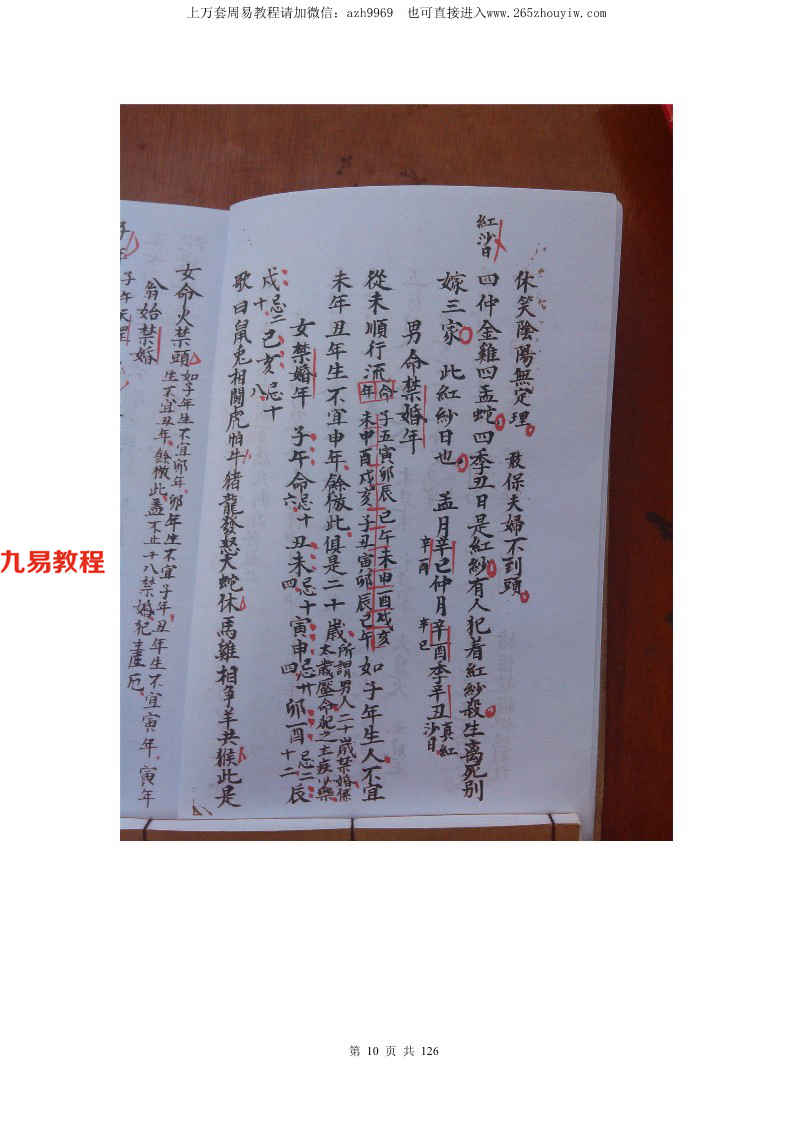 上万套周易教程请加微信：azh9969 也可直接进入www.265zhouyiw.com
休笑陰陽無定理 敢保夫婦不到頭
紅沙日
四仲金雞四孟蛇四季丑日是紅紗有人犯着紅紗殺生离死别
嫁三家 此紅紗日也 孟月辛巳仲月辛酉季辛丑真紅沙日
辛酉 辛巳
男命禁婚年
從未順行流年命 子丑寅卯辰巳午未申酉戌亥
未申酉戌亥子丑寅卯辰巳午 如子年生人不宜
未年丑年生不宜申年餘倣此俱是二十歲所謂男人二十歲禁婚
女禁婚年 子午命忌十六 丑未忌十四 寅申忌廿四 卯酉忌二十二 辰
戌忌二十 巳亥忌十八
歌曰鼠兔相閗虎怕牛猪龍發怒犬蛇休馬雞相争羊共猴此是
女命火禁頭如子年生不宜卯年卯年生不宜子年丑年生不宜寅年寅年
生不宜丑年餘倣此
翁始禁婚
九易教程
第 10 页 共 126